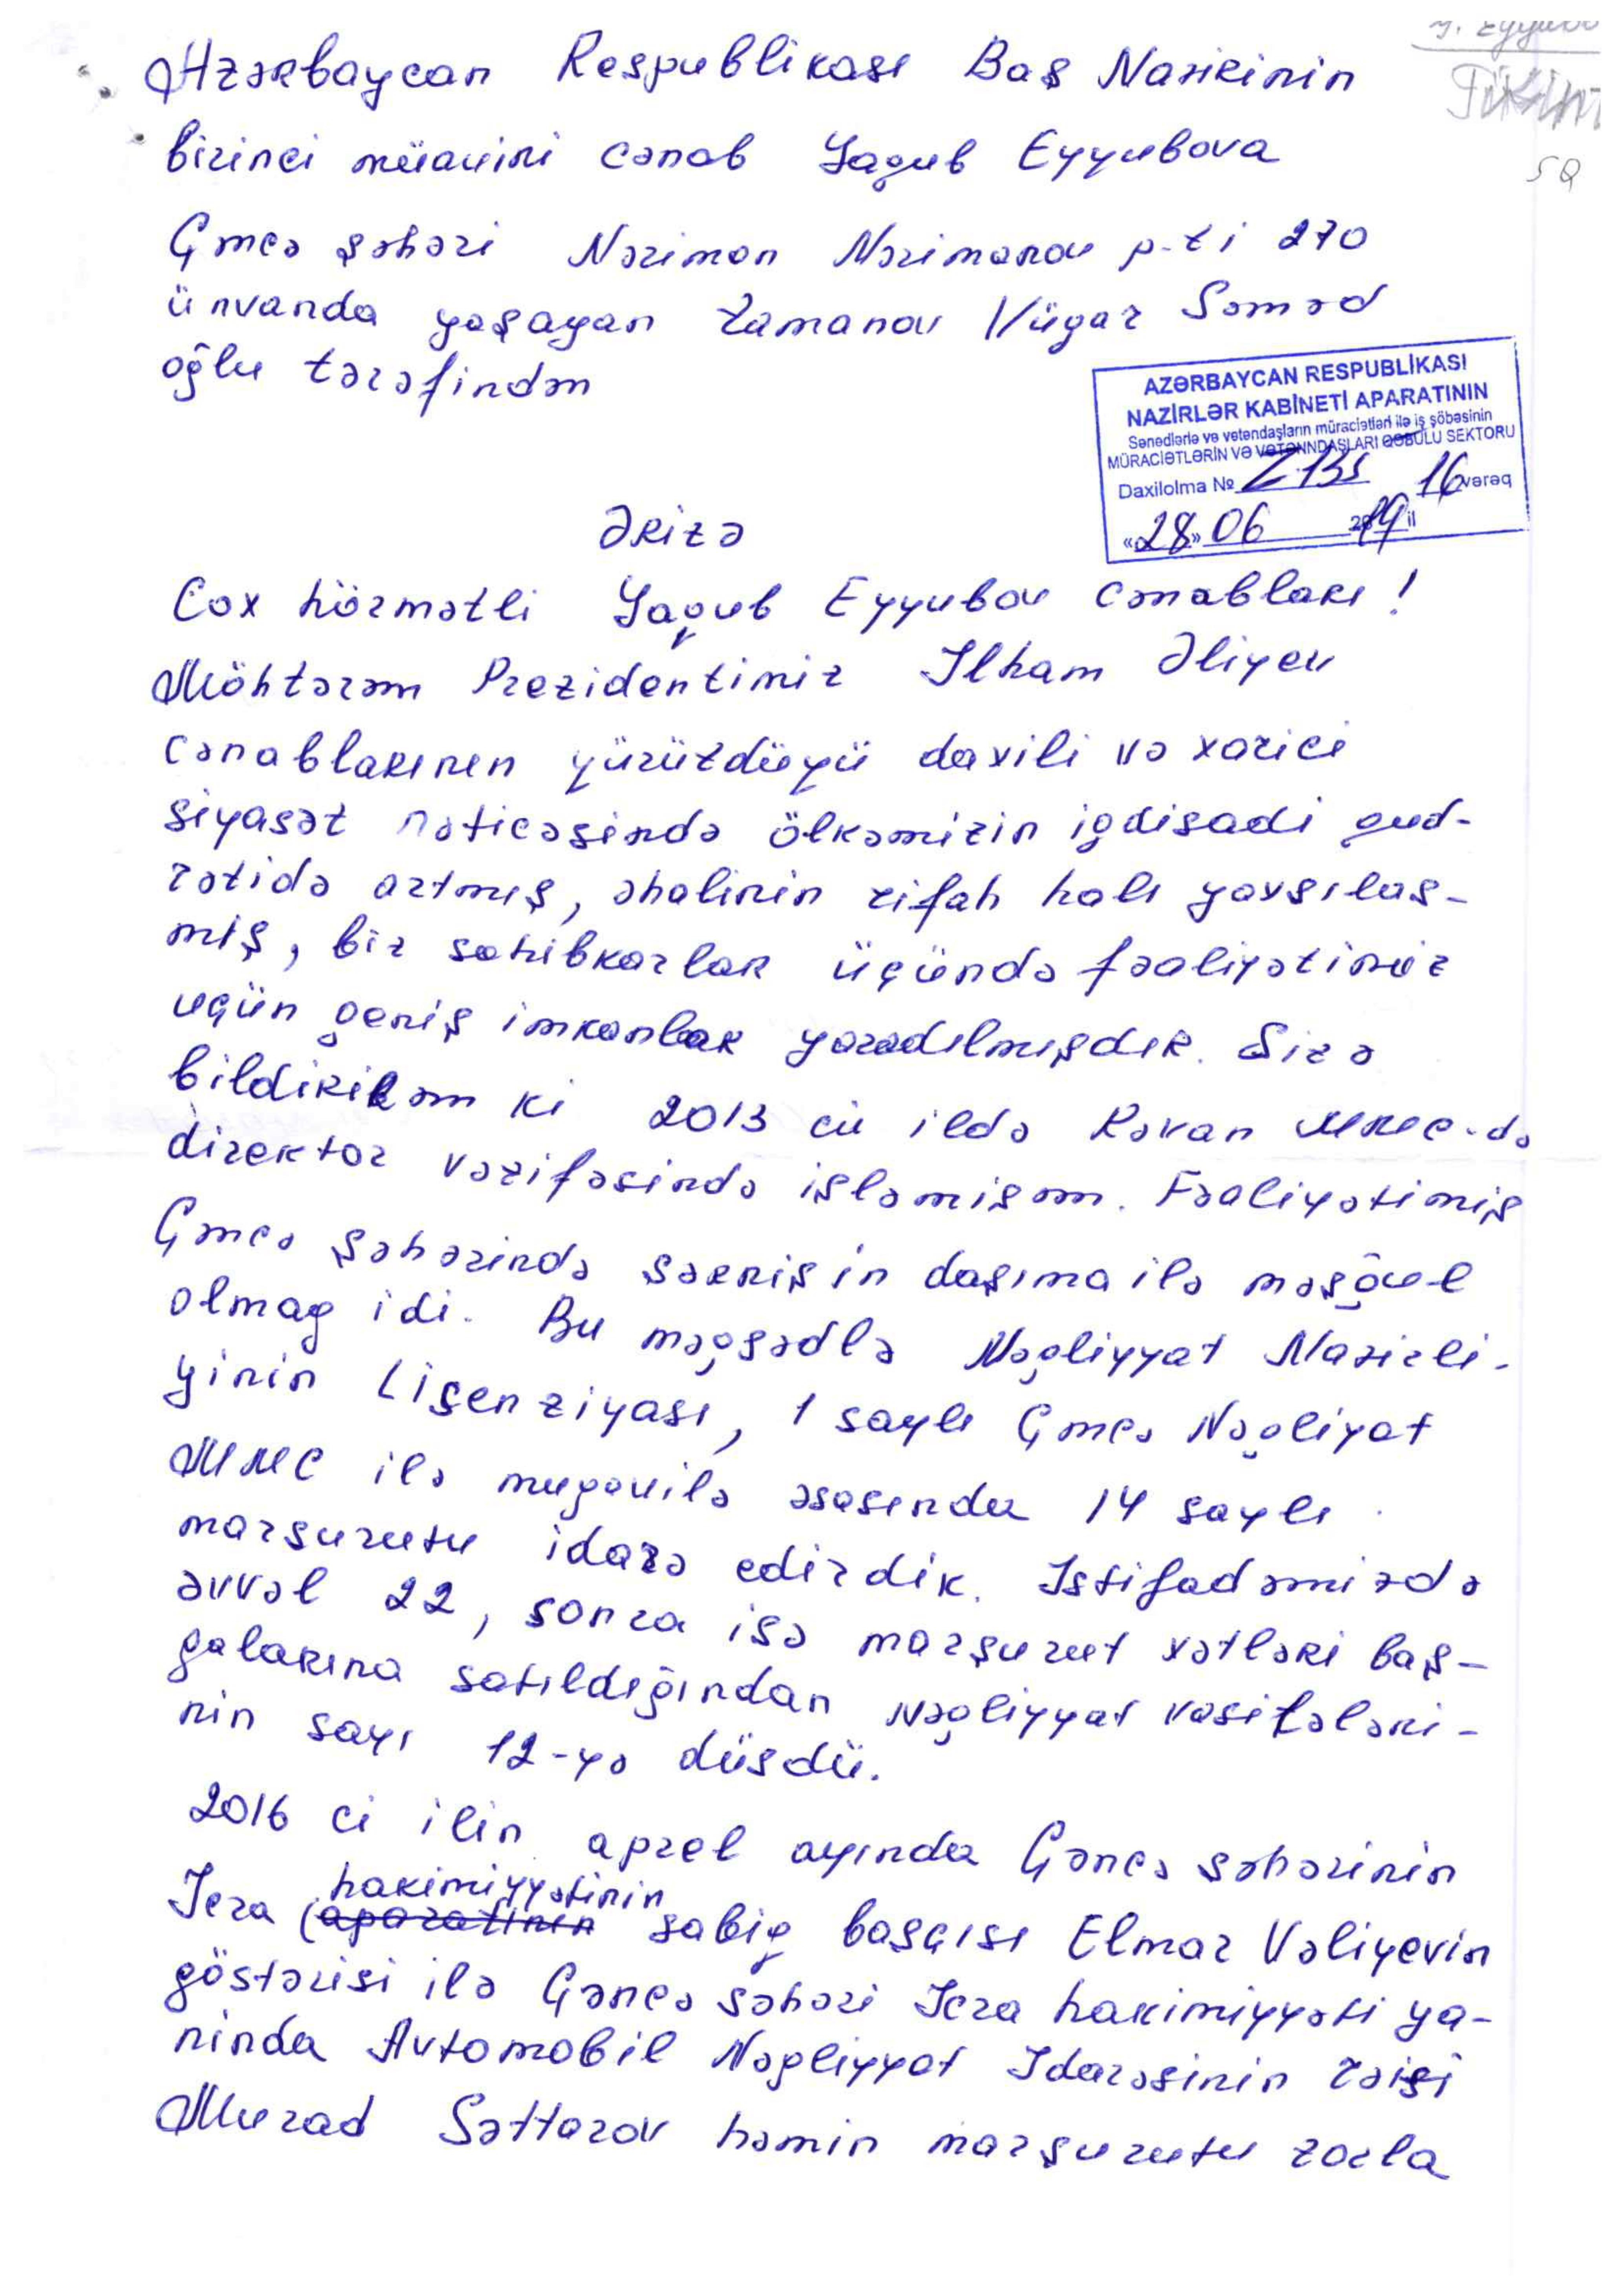 Y. Eyyubo
Azərbaycan Respublikası Baş Nazirinin
birinci müavini cənab Yaqub Eyyubova
Gəncə şəhəri Nəriman Nərimanov p-ti 270
ünvanda yaşayan Zamanov Vüqar Səməd
oğlu tərəfindən
AZƏRBAYCAN RESPUBLİKASI
NAZİRLƏR KABİNETİ APARATININ
Sənədlərlə və vətəndaşların müraciətləri ilə iş şöbəsinin
MÜRACİƏTLƏRİN VƏ VƏTƏNNDAŞLARI QƏBULU SEKTORU
Daxilolma № Z-135 16 vərəq
«28» 06 2019 il
Ərizə
Cox hörmətli Yaqub Eyyubov cənabları!
Möhtərəm Prezidentimiz Ilham Əliyev
cənablarının yürütdüyü daxili və xarici
siyasət nəticəsində ölkəmizin iqdisadi qud-
rətidə artmış, əhalinin rifah halı yaxsılaş-
mış, biz sahibkarlar üçündə fəaliyətimiz
uçün geniş imkanlar yaradılmışdır. Sizə
bildirirəm ki 2013 cü ildə Rəvan MMC-də
direktor vəzifəsində işləmişəm. Fəaliyətimiş
Gəncə şəhərində sərnişin daşıma ilə məşğul
olmaq idi. Bu məqsədlə Nəqliyyat Nazirli-
yinin Lisenziyası, 1 saylı Gəncə Nəqliyat
MMC ilə muqavilə əsasında 14 saylı
marsurutu idarə edirdik. Istifadəmizdə
əvvəl 22, sonra isə marşurut xətləri baş-
qalarına satıldığından Nəqliyyat vasitələri-
nin sayı 12-yə düşdü.
2016 ci ilin aprel ayında Gəncə şəhərinin
Icra (aparatının hakimiyyətinin sabiq başçısı Elmar Vəliyevin
göstərisi ilə Gəncə şəhəri Icra hakimiyyəti ya-
ninda Avtomobil Nəqliyyat Idarəsinin rəisi
Murad Səttarov həmin marşurutu zorla